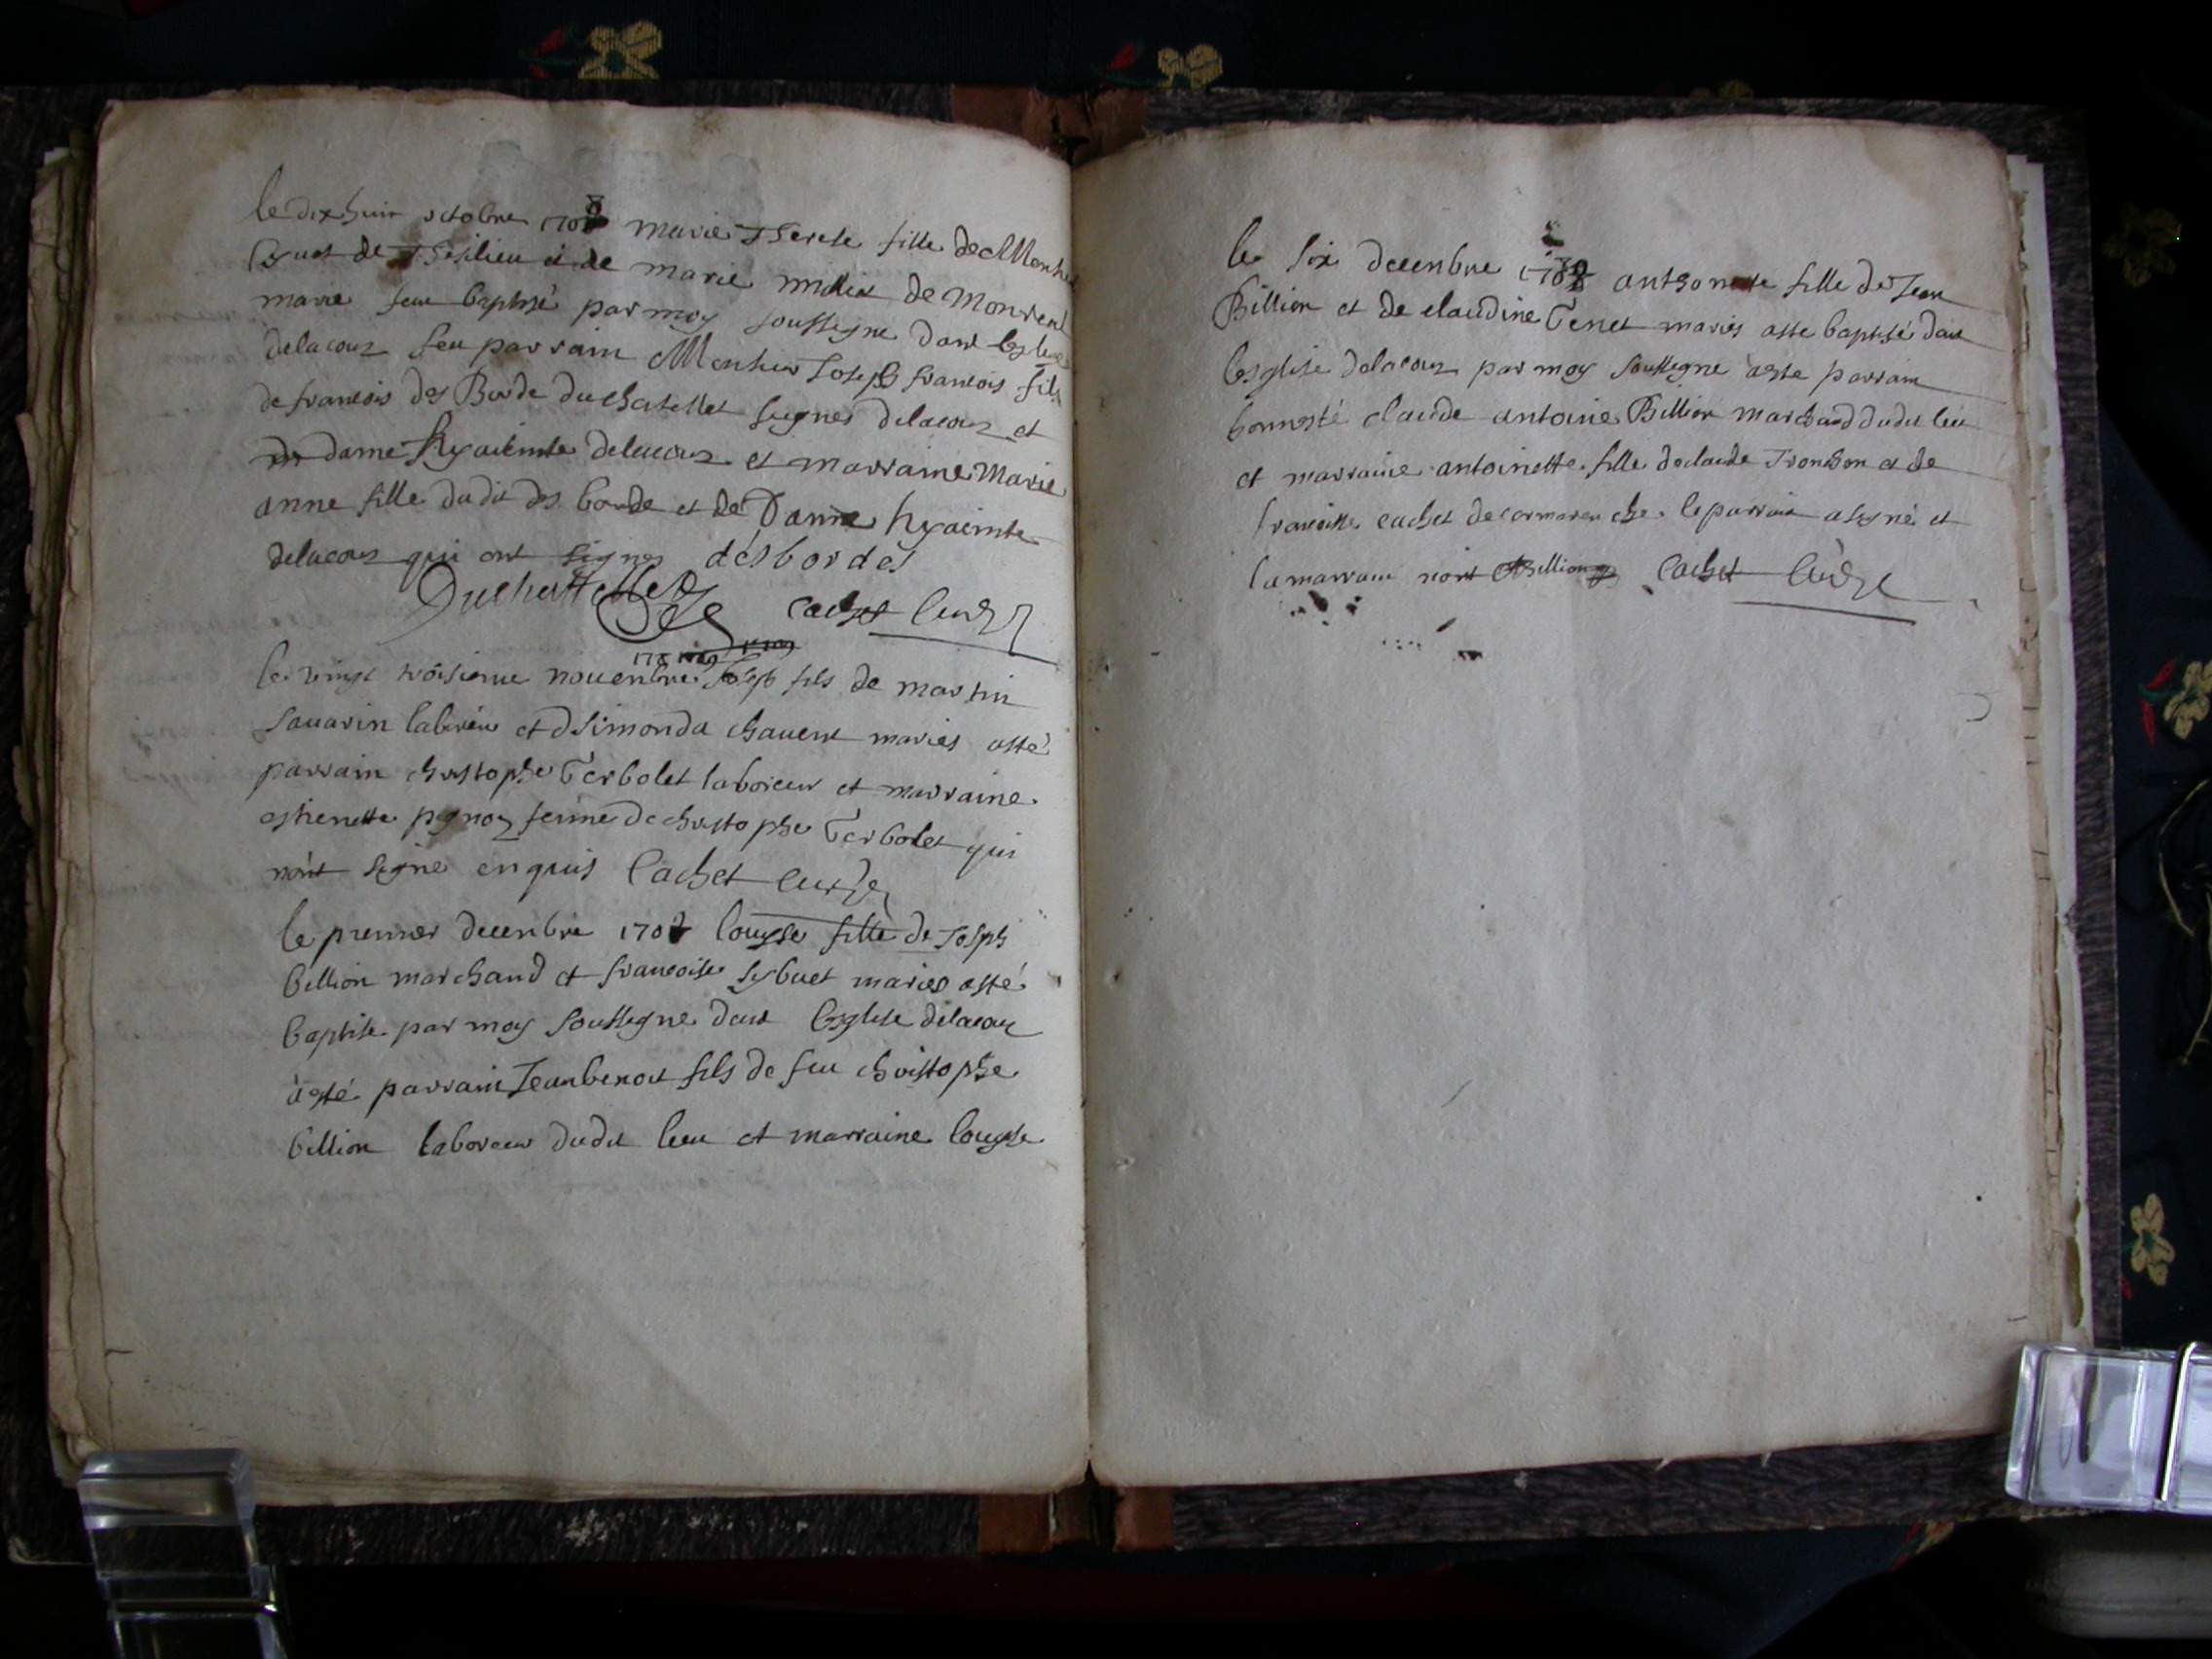 le dix huit octobre 1708 marie Therese fille de Monsieur
de et de marie de
marie feu baptisé par moy soussigne dans
delacour feu parrain Monsieur Joseph francois fils
de francois des Borde du chatellet segner delacour et
dame hyacinte delacour et marraine Marie
anne fille dudit des borde et de Dame hyacinte
delacour qui ont signes désbordes
Duchattellet cachet curé
178
le vingt troisieme nouenbre Joseph fils de martin
sauarin laboreu et Dsimonda chauent mariés asté
parrain christophe Gerbolet laboreur et marraine
estienette pignoy feme de christophe Gerbolet qui
nont signé enquis Cachet curé
le premier decenbre 1708 louyse fille de Joseph
billion marchand et francoise mariés asté
baptise par moy soussigne dans leglise delacour
à esté parrain Jean benoit fils de feu christophe
billion laboreur dudit lieu et marraine louysse
le six decenbre 1708 anthonette fille de Jean
Billion et de claudine Genet mariés asté baptisé dans
leglise delacour par moy soussigne aesté parrain
honnesté claude antoine Billion marchand dudit lieu
et marraine antoinette fille de claude Tronchon et de
francoise cachet de cormarenche. le parrain a signé et
la marraine nont Billion Cachet Curé